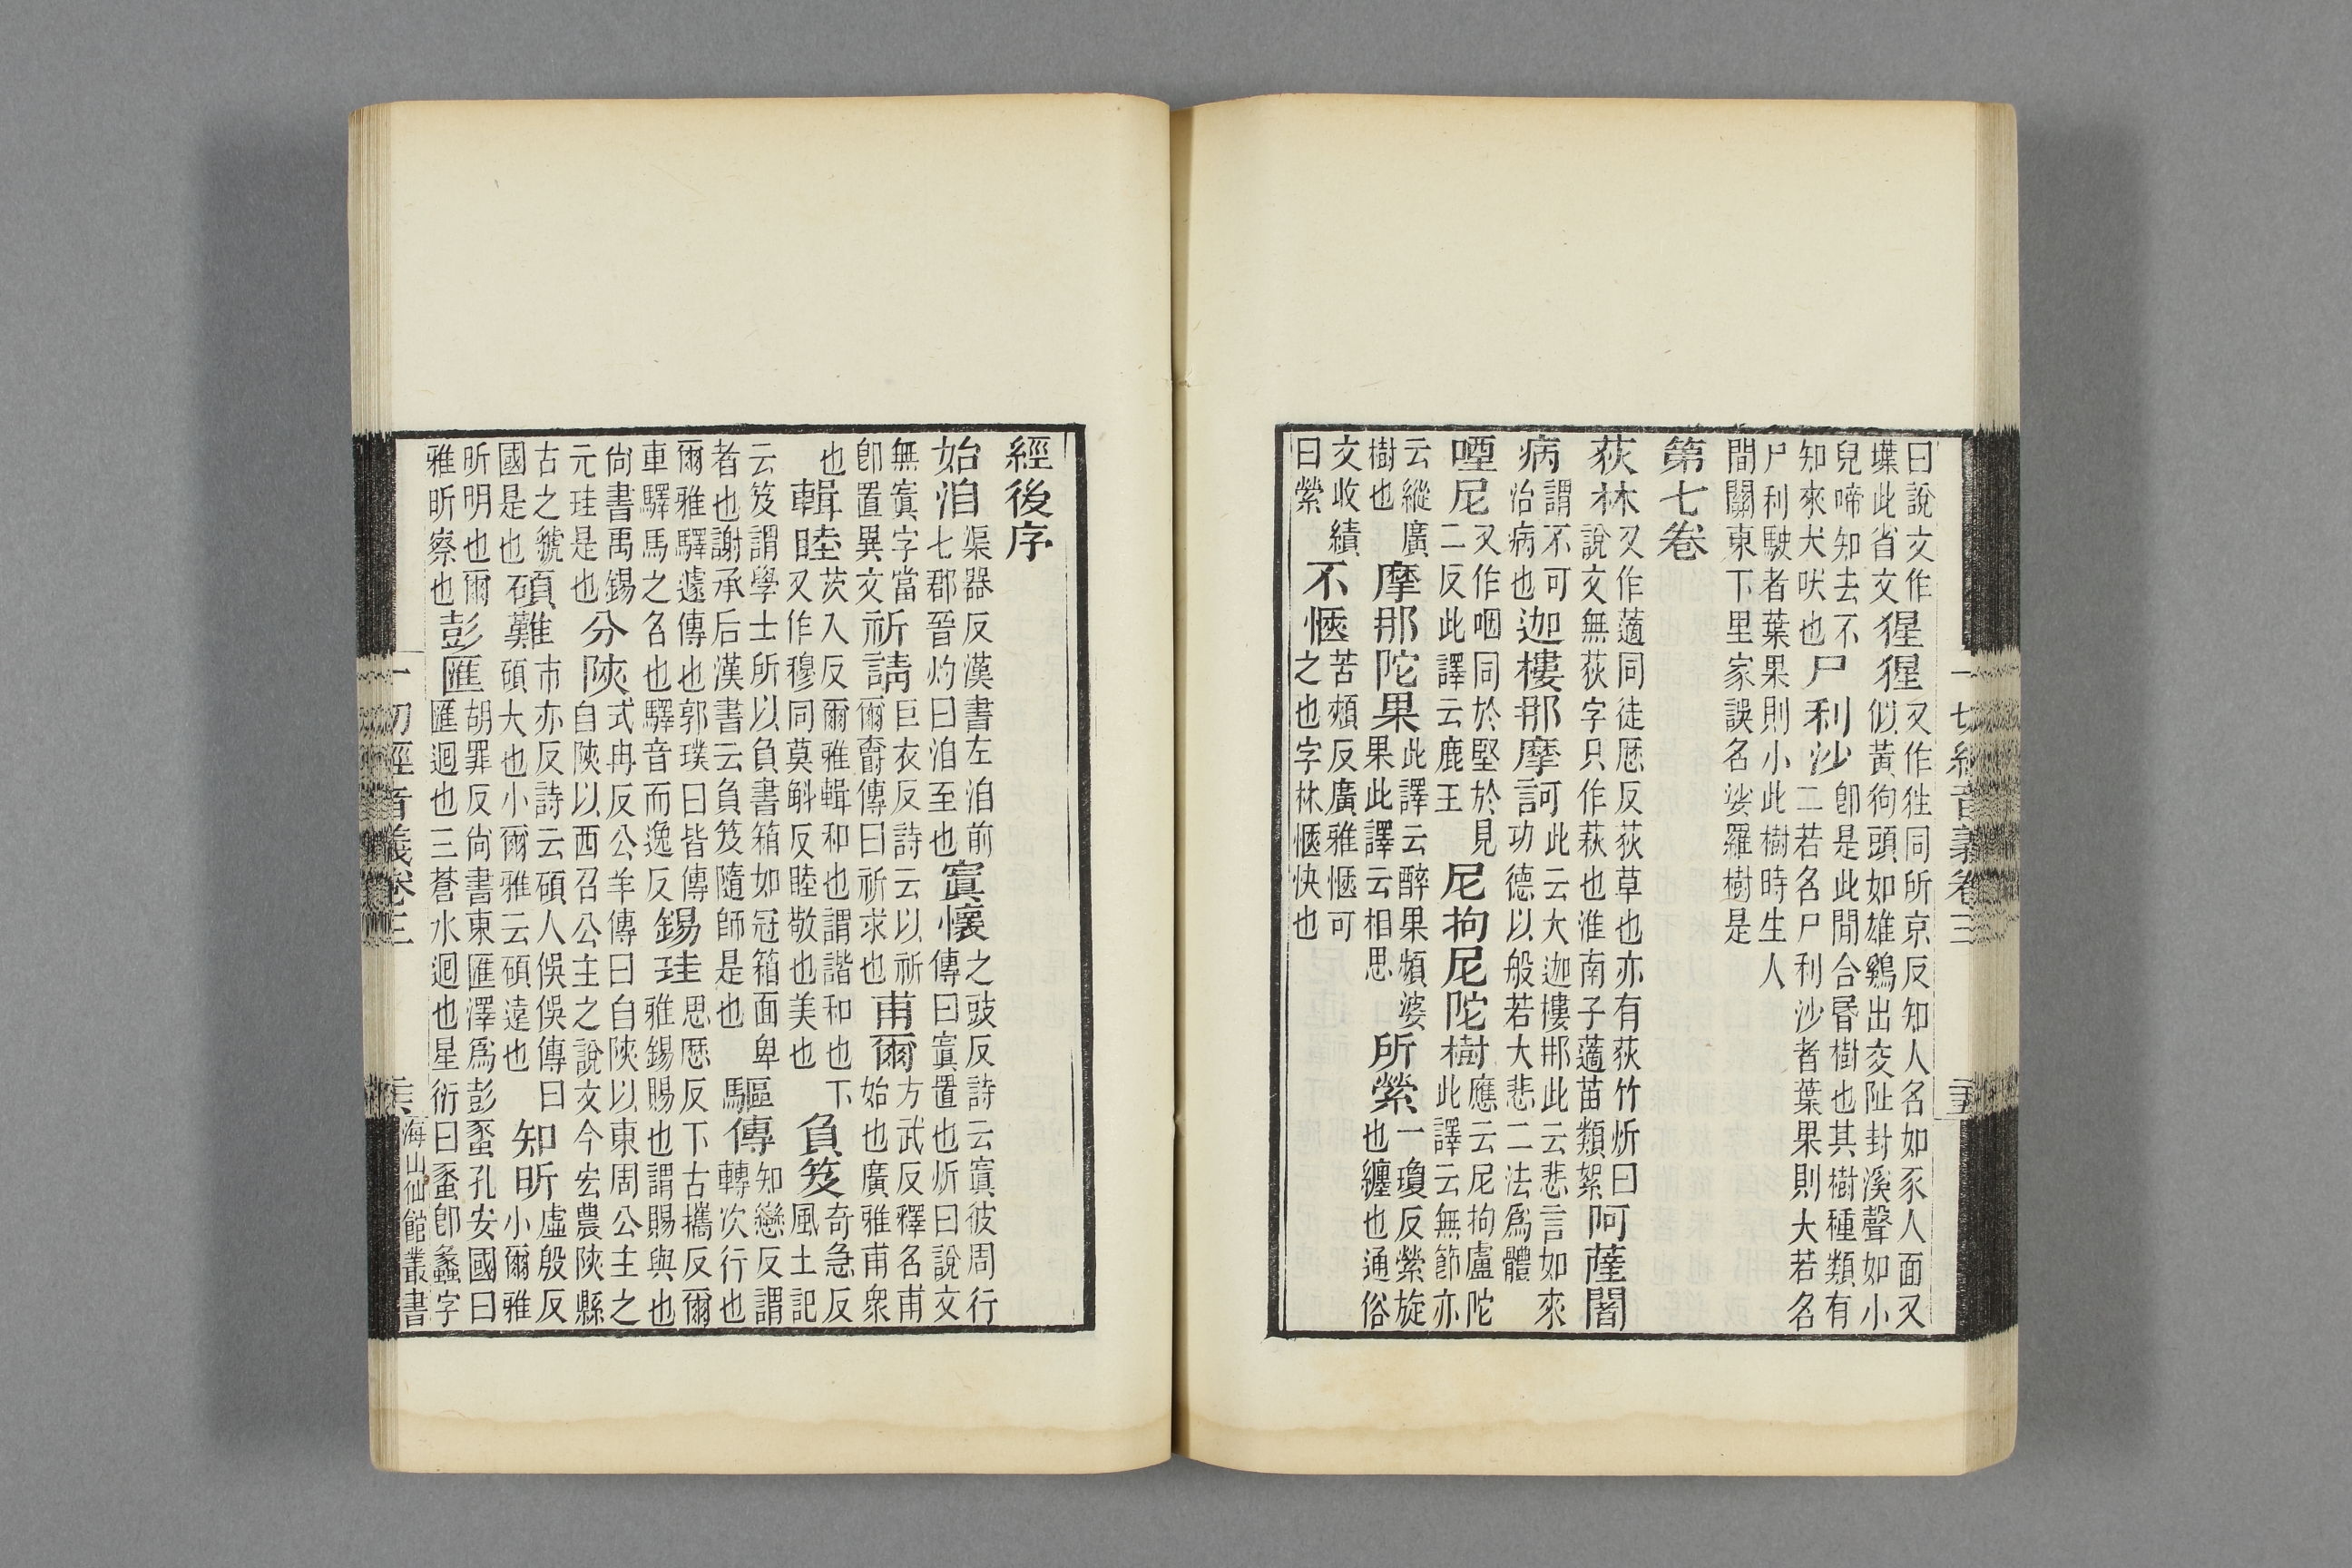 一切經音義卷三
三五
曰說文作㙪此省文猩猩又作狌同所京反知人名如豕人面又似黃狗頭如雄鷄出交阯封溪聲如小
兒啼知去不知來犬吠也尸利沙卽是此閒合昬樹也其樹種類有二若名尸利沙者葉果則大若名
尸利駛者葉果則小此樹時生人閒關東下里家誤名娑羅樹是
第七卷
荻林又作藡同徒歷反荻草也亦有荻竹炘曰說文無荻字只作萩也淮南子藡苗類絮阿薩闍
病謂不可治病也迦樓那摩訶此云大迦樓那此云悲言如來功德以般若大悲二法爲體
堙尼又作咽同於堅於見二反此譯云鹿王尼拘尼陀樹應云尼拘盧陀此譯云無節亦
云縱廣樹也摩那陀果此譯云醉果頻婆果此譯云相思所縈一瓊反縈旋也纏也通俗
文收績曰縈不愜苦頰反廣雅愜可之也字林愜快也
經後序
始洎渠器反漢書左洎前七郡晉灼曰洎至也寘懷之豉反詩云寘彼周行傳曰寘置也炘曰說文
無寘字當卽置異文祈請巨衣反詩云以祈爾爵傳曰祈求也甫爾方武反釋名甫始也廣雅甫衆
也輯睦茨入反爾雅輯和也謂諧和也下又作穆同莫斛反睦敬也美也負笈奇急反風土記
云笈謂學士所以負書箱如冠箱而卑者也謝承后漢書云負笈隨師是也驅傳知戀反謂轉次行也
爾雅驛遽傳也郭璞曰皆傳車驛馬之名也驛音而逸反錫珪思歷反下古攜反爾雅錫賜也謂賜與也
尙書禹錫元珪是也分陝式冉反公羊傳曰自陝以東周公主之自陝以西召公主之說文今宏農陝縣
古之虢國是也碩難市亦反詩云碩人俁俁傳曰碩大也小爾雅云碩遠也知昕虛殷反小爾雅
昕明也爾雅昕察也彭匯胡罪反尙書東匯澤爲彭蠡孔安國曰匯迴也三蒼水迴也星衍曰蠡卽蠡字
一切經音義卷三
海山仙館叢書